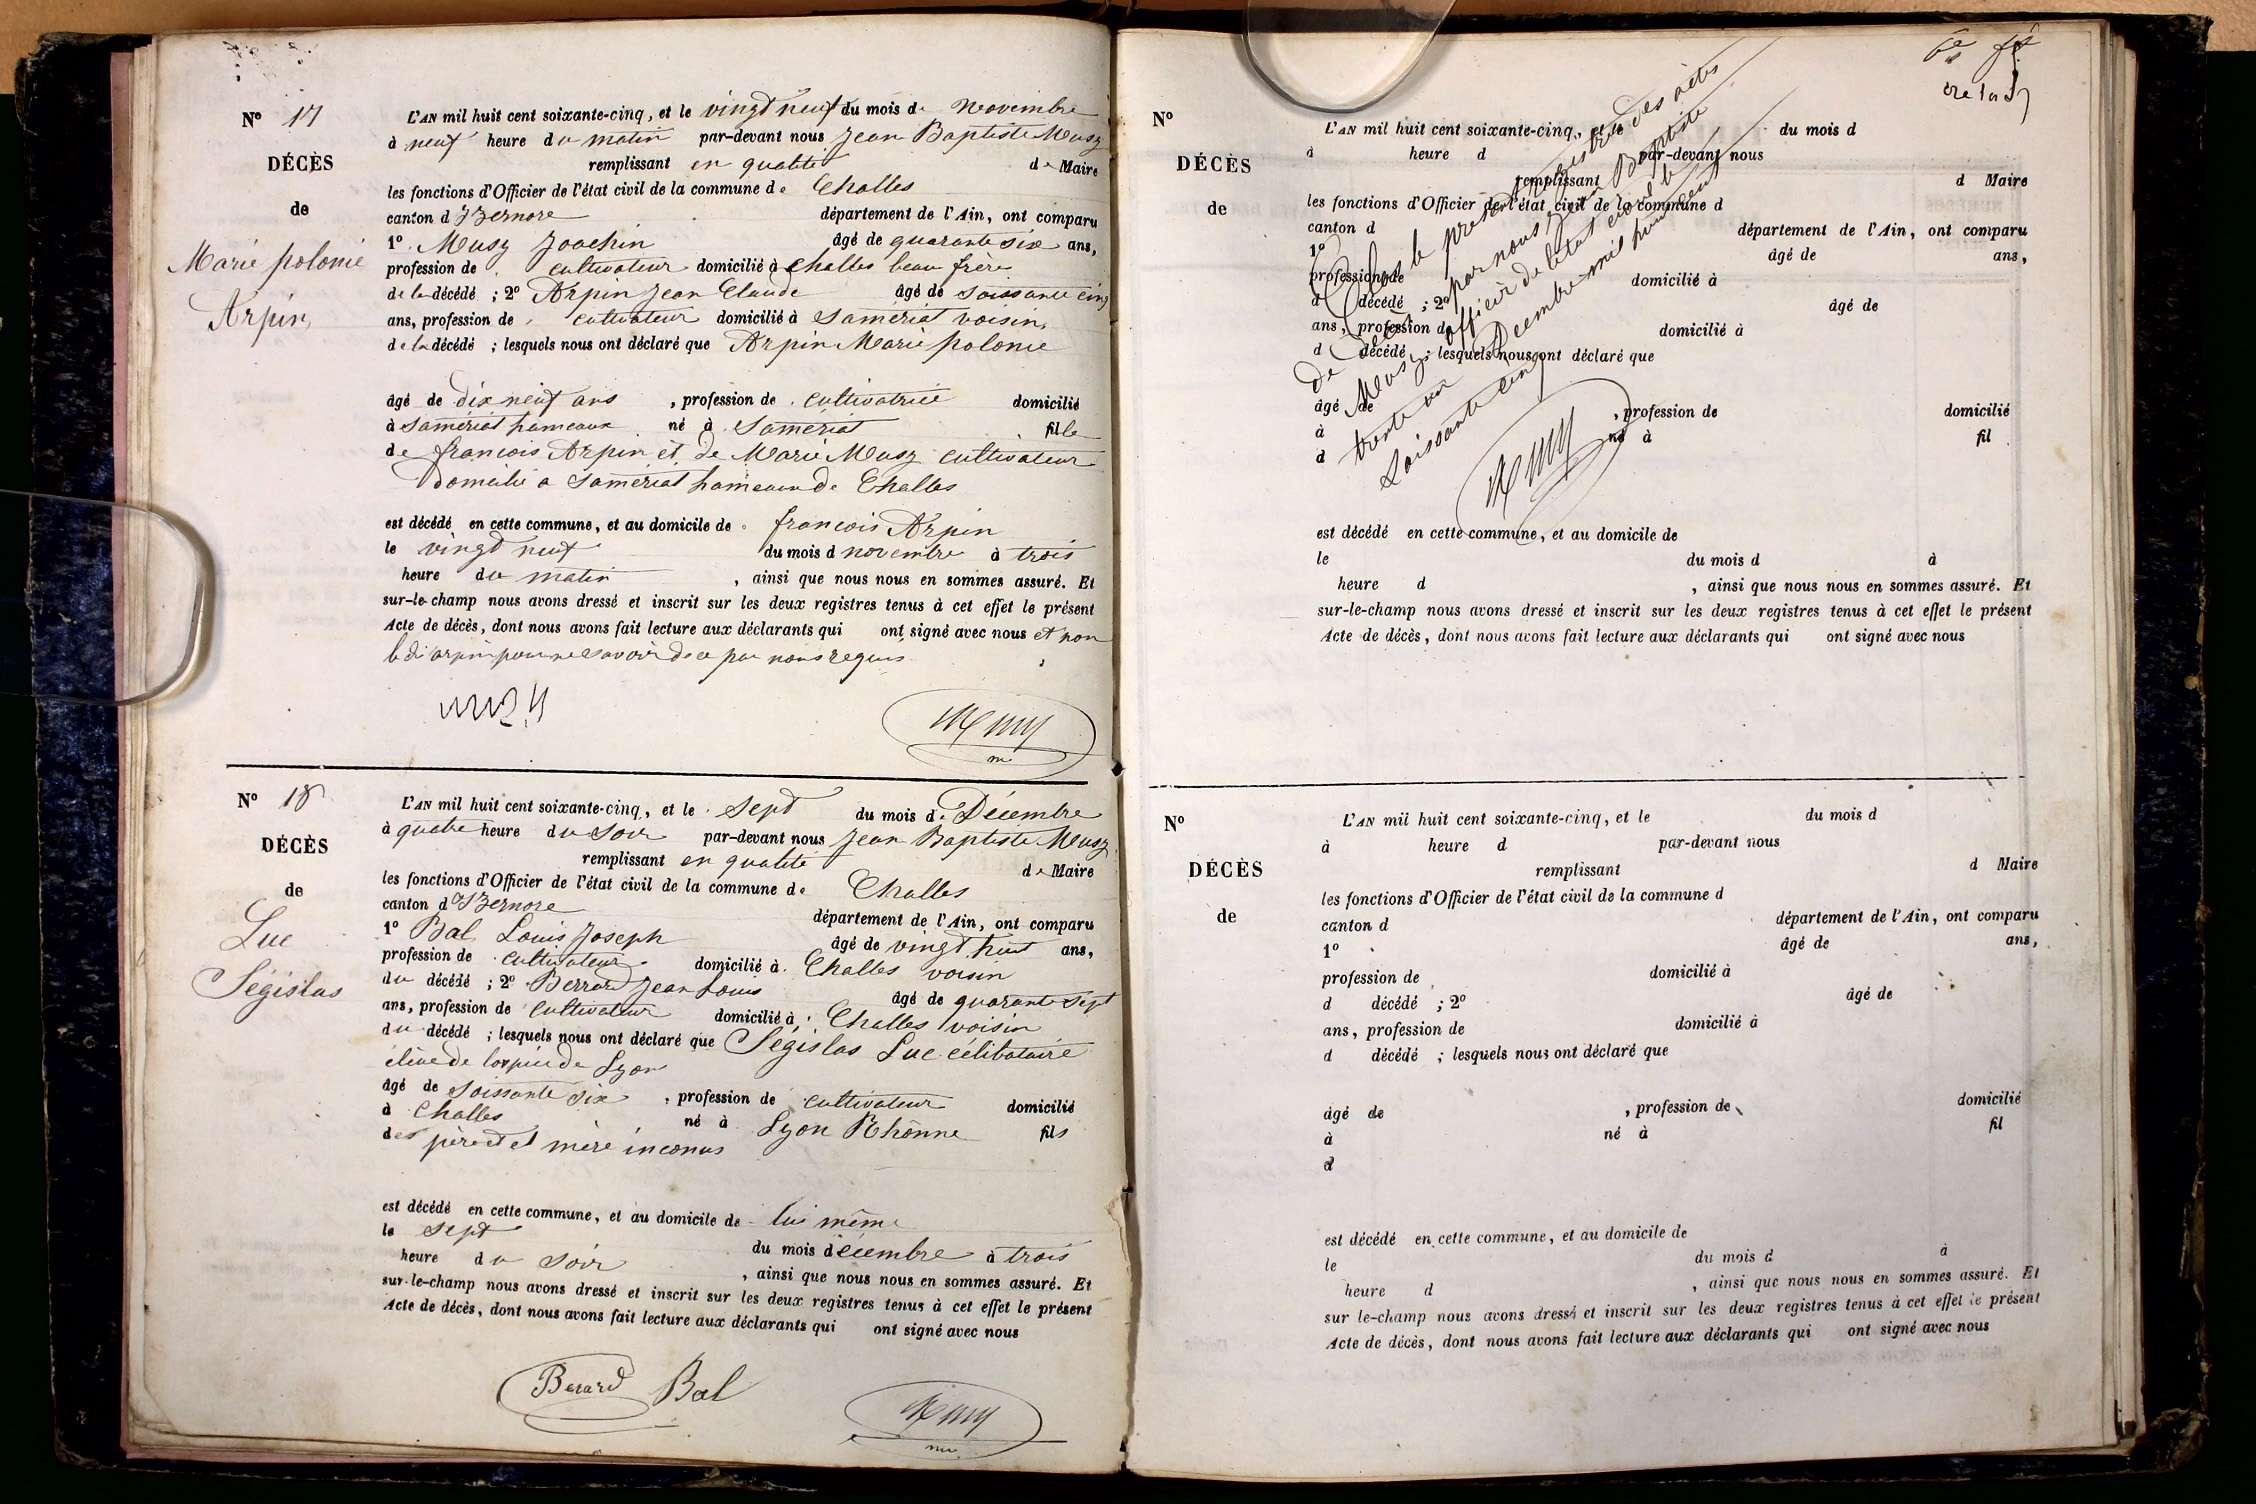 Nº 17
DÉCÈS
de
Marie polonie
Arpin
L'AN mil huit cent soixante-cinq, et le vingt neuf du mois de Novembre
à neuf heure du matin par-devant nous Jean Baptiste Musy
remplissant en qualité de Maire
les fonctions d'Officier de l'état civil de la commune de Challes
canton d'Izernore département de l'Ain, ont comparu
1º Musy Joachin âgé de quarante six ans,
profession de cultivateur domicilié à Challes beau frère
de la décédé ; 2º Arpin Jean Claude âgé de soissante cinq
ans, profession de cultivateur domicilié à Samériat voisin
de la décédé ; lesquels nous ont déclaré que Arpin Marie polonie
âgé de dix neuf ans , profession de cultivatrice domicilié
à Samériat hameaux né à Samériat fille
de francois Arpin et de Marie Musy cultivateur
Domicilié a Samériat hameaux de Challes
est décédé en cette commune, et au domicile de francois Arpin
le vingt neuf du mois d novembre à trois
heure du matin , ainsi que nous nous en sommes assuré. Et
sur-le-champ nous avons dressé et inscrit sur les deux registres tenus à cet effet le présent
Acte de décès, dont nous avons fait lecture aux déclarants qui ont signé avec nous et non
le di arpin pour ne savoir de ce par nous requis
Musy
Musy
Nº 18
DÉCÈS
de
Luc
Ségislas
L'AN mil huit cent soixante-cinq, et le sept du mois de Décembre
à quatre heure du soir par-devant nous Jean Baptiste Musy
remplissant en qualité de Maire
les fonctions d'Officier de l'état civil de la commune de Challes
canton d'Izernore département de l'Ain, ont comparu
1º Bal Louis Joseph âgé de vingt huit ans,
profession de cultivateur domicilié à Challes voisin
du décédé ; 2º Berrard Jean Louis âgé de quarante sept
ans, profession de cultivateur domicilié à Challes voisin
du décédé ; lesquels nous ont déclaré que Ségislas Luc célibataire
élève de lospice de Lyon
âgé de soissante six , profession de cultivateur domicilié
à Challes né à Lyon Rhônne fils
des père et mère inconus
est décédé en cette commune, et au domicile de lui même
le sept du mois décembre à trois
heure du soir , ainsi que nous nous en sommes assuré. Et
sur-le-champ nous avons dressé et inscrit sur les deux registres tenus à cet effet le présent
Acte de décès, dont nous avons fait lecture aux déclarants qui ont signé avec nous
Berard Bal
Musy
Nº
DÉCÈS
de
L'AN mil huit cent soixante-cinq, et le du mois d
à heure d par-devant nous
remplissant d Maire
les fonctions d'Officier de l'état civil de la commune d
canton d département de l'Ain, ont comparu
1º âgé de ans,
profession de domicilié à
d décédé ; 2º âgé de
ans, profession de domicilié à
d décédé ; lesquels nous ont déclaré que
âgé de , profession de domicilié
à né à fil
d
Clos le présent registre des actes
De décès par nous Jean Baptiste
Musy officier de l'état civil le
trente un Décembre mil huit cent
Soissante cinq
Musy
est décédé en cette commune, et au domicile de
le du mois d à
heure d , ainsi que nous nous en sommes assuré. Et
sur-le-champ nous avons dressé et inscrit sur les deux registres tenus à cet effet le présent
Acte de décès, dont nous avons fait lecture aux déclarants qui ont signé avec nous
Nº
DÉCÈS
de
L'AN mil huit cent soixante-cinq, et le du mois d
à heure d par-devant nous
remplissant d Maire
les fonctions d'Officier de l'état civil de la commune d
canton d département de l'Ain, ont comparu
1º âgé de ans,
profession de domicilié à
d décédé ; 2º âgé de
ans, profession de domicilié à
d décédé ; lesquels nous ont déclaré que
âgé de , profession de domicilié
à né à fil
d
est décédé en cette commune, et au domicile de
le du mois d à
heure d , ainsi que nous nous en sommes assuré. Et
sur le-champ nous avons dressé et inscrit sur les deux registres tenus à cet effet le présent
Acte de décès, dont nous avons fait lecture aux déclarants qui ont signé avec nous